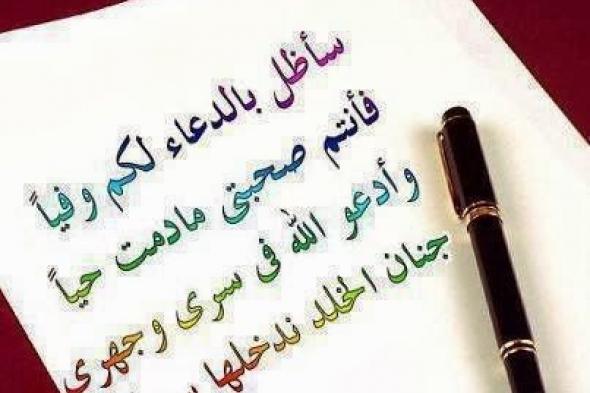 سأظل بالدعاء لكم وفياً
فأنتم صحبتى مادمت حياً
وأدعو الله فى سرى وجهرى
جنان الخلد ندخلها